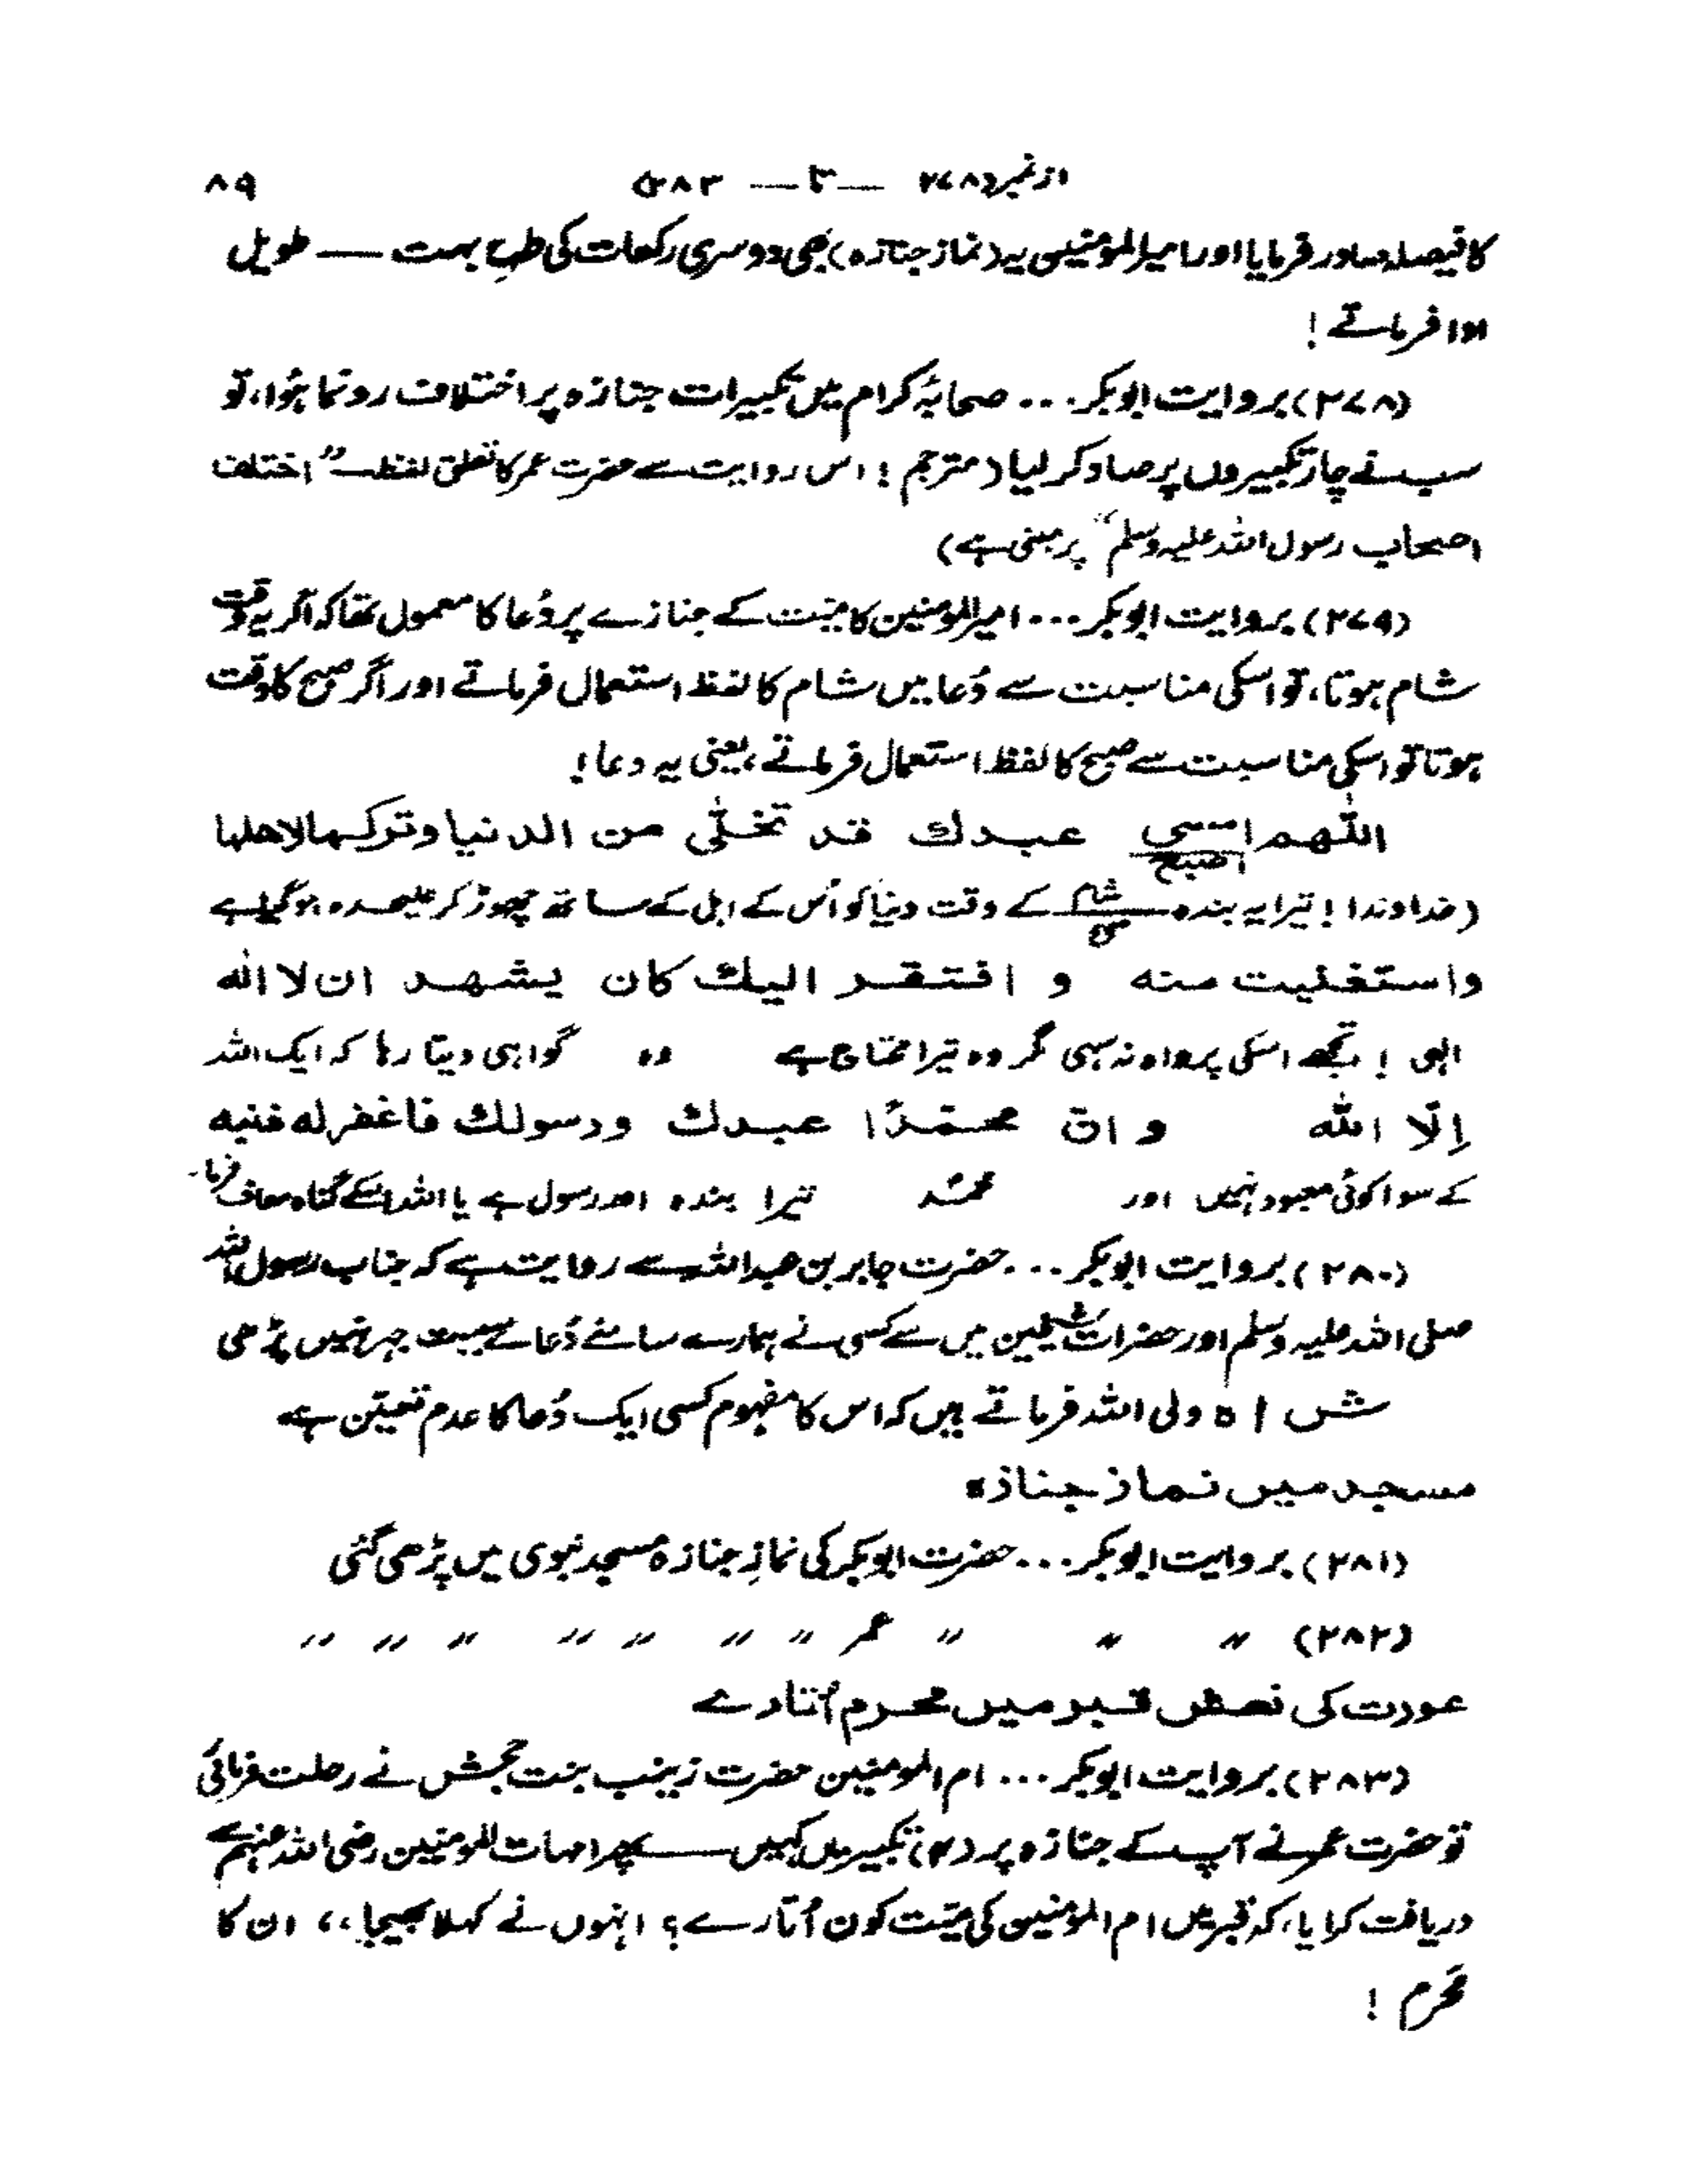 از نمبر (۲۷۸ — تا — ۲۸۳) ۸۹
کا فیصلہ صادر فرمایا اور امیر المؤمنین یہ (نماز جنازہ) بھی دوسری رکعات کی طرح بہت — طویل
ادا فرماتے !
(۲۷۸) بروایت ابوبکر ... صحابۂ کرام میں تکبیرات جنازہ پر اختلاف رونما ہُوا، تو
سب نے چار تکبیروں پر صاد کر لیا (مترجم ! اس روایت سے حضرت عمر کا تعلق لفظ ”اختلف
اصحاب رسول اللہ علیہ وسلم“ پر مبنی ہے)
(۲۷۹) بروایت ابوبکر ... امیر المومنین کا میّت کے جنازے پر دُعا کا معمول تھا کہ اگر یہ وقت
شام ہوتا، تو اسکی مناسبت سے دُعا میں شام کا لفظ استعمال فرماتے اور اگر صبح کا وقت
ہوتا تو اسکی مناسبت سے صبح کا لفظ استعمال فرماتے، یعنی یہ دعا !
اللّٰھم امسی عبدك قد تخلّٰی من الدنیا وترکھا لاھلہا
اصبح
(خداوندا ! تیرا یہ بندہ شام کے وقت دنیا کو اُس کے اہل کے ساتھ چھوڑ کر علیحدہ ہو گیا ہے
صبح
واستغنیت منه و افتقر الیك کان یشھد ان لا الٰه
الٰہی ! تجھے اسکی پرواہ نہ سہی مگر وہ تیرا محتاج ہے وہ گواہی دیتا رہا کہ ایک اللہ
اِلّا اللّٰه و ان محمّدًا عبدك ورسولك فاغفرله ذنبه
کے سوا کوئی معبود نہیں اور محمدؐ تیرا بندہ اور رسول ہے یا اللہ اسکے گناہ معاف فرما-
(۲۸۰) بروایت ابوبکر ... حضرت جابر بن عبداللہ سے روایت ہے کہ جناب رسول اللہ
صلی اللہ علیہ وسلم اور حضرات شیخین میں سے کسی نے ہمارے سامنے دُعائے میت جہر نہیں پڑھی
شاہ ولی اللہ فرماتے ہیں کہ اس کا مفہوم کسی ایک دُعا کا عدم تعیّن ہے
مسجد میں نماز جنازہ
(۲۸۱) بروایت ابوبکر ... حضرت ابوبکر کی نمازِ جنازہ مسجد نبوی میں پڑھی گئی
(۲۸۲) 〃 〃 〃 عمر 〃 〃 〃 〃 〃 〃 〃
عورت کی نعش قبر میں محرم اُتارے
(۲۸۳) بروایت ابوبکر ... ام المومنین حضرت زینب بنت جحش نے رحلت فرمائی
تو حضرت عمر نے آپ کے جنازہ پر (۴) تکبیریں کہیں — پھر امہات المومنین رضی اللہ عنہم سے
دریافت کرایا، کہ قبر میں ام المومنین کی میّت کون اُتارے ؟ انہوں نے کہلا بھیجا،، ان کا
مَحرم !